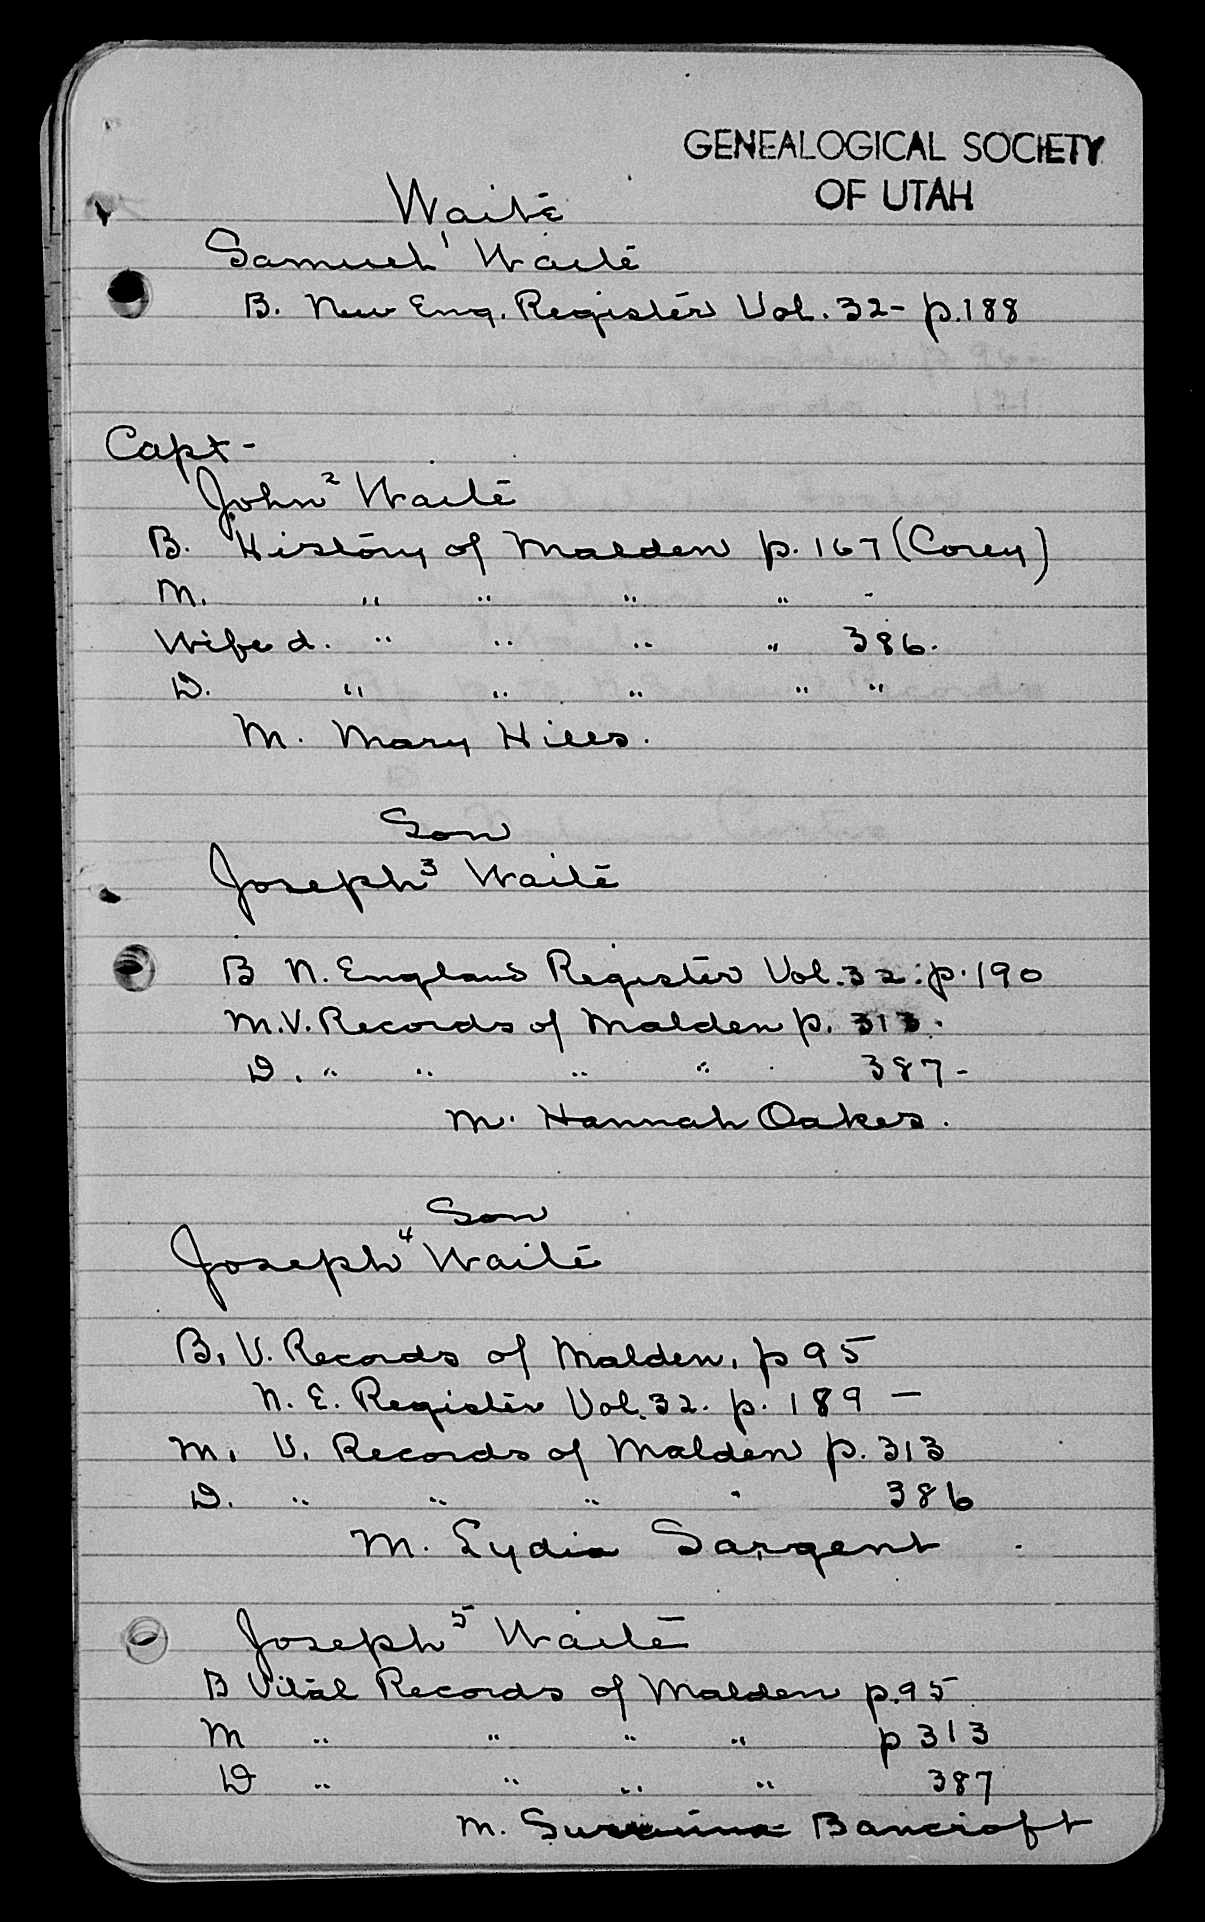 GENEALOGICAL SOCIETY
OF UTAH
Waite
Samuel¹ Waite
B. New Eng. Register Vol. 32- p.188
Capt-
John² Waite
B. History of Malden p. 167 (Corey)
M. " " " " -
Wife d. " " " " 386.
D. " " " " "
M. Mary Hills.
Son
Joseph³ Waite
B N. England Register Vol. 32: p. 190
M.V. Records of Malden p. 313.
D. " " " " 387-
M. Hannah Oakes.
Son
Joseph⁴ Waite
B. V. Records of Malden, p 95
N. E. Register Vol. 32. p. 189 —
M. V. Records of Malden p. 313
D. " " " " 386
M. Lydia Sargent
Joseph⁵ Waite
B Vital Records of Malden p.95
M " " " " p 313
D " " " " 387
M. Bancroft